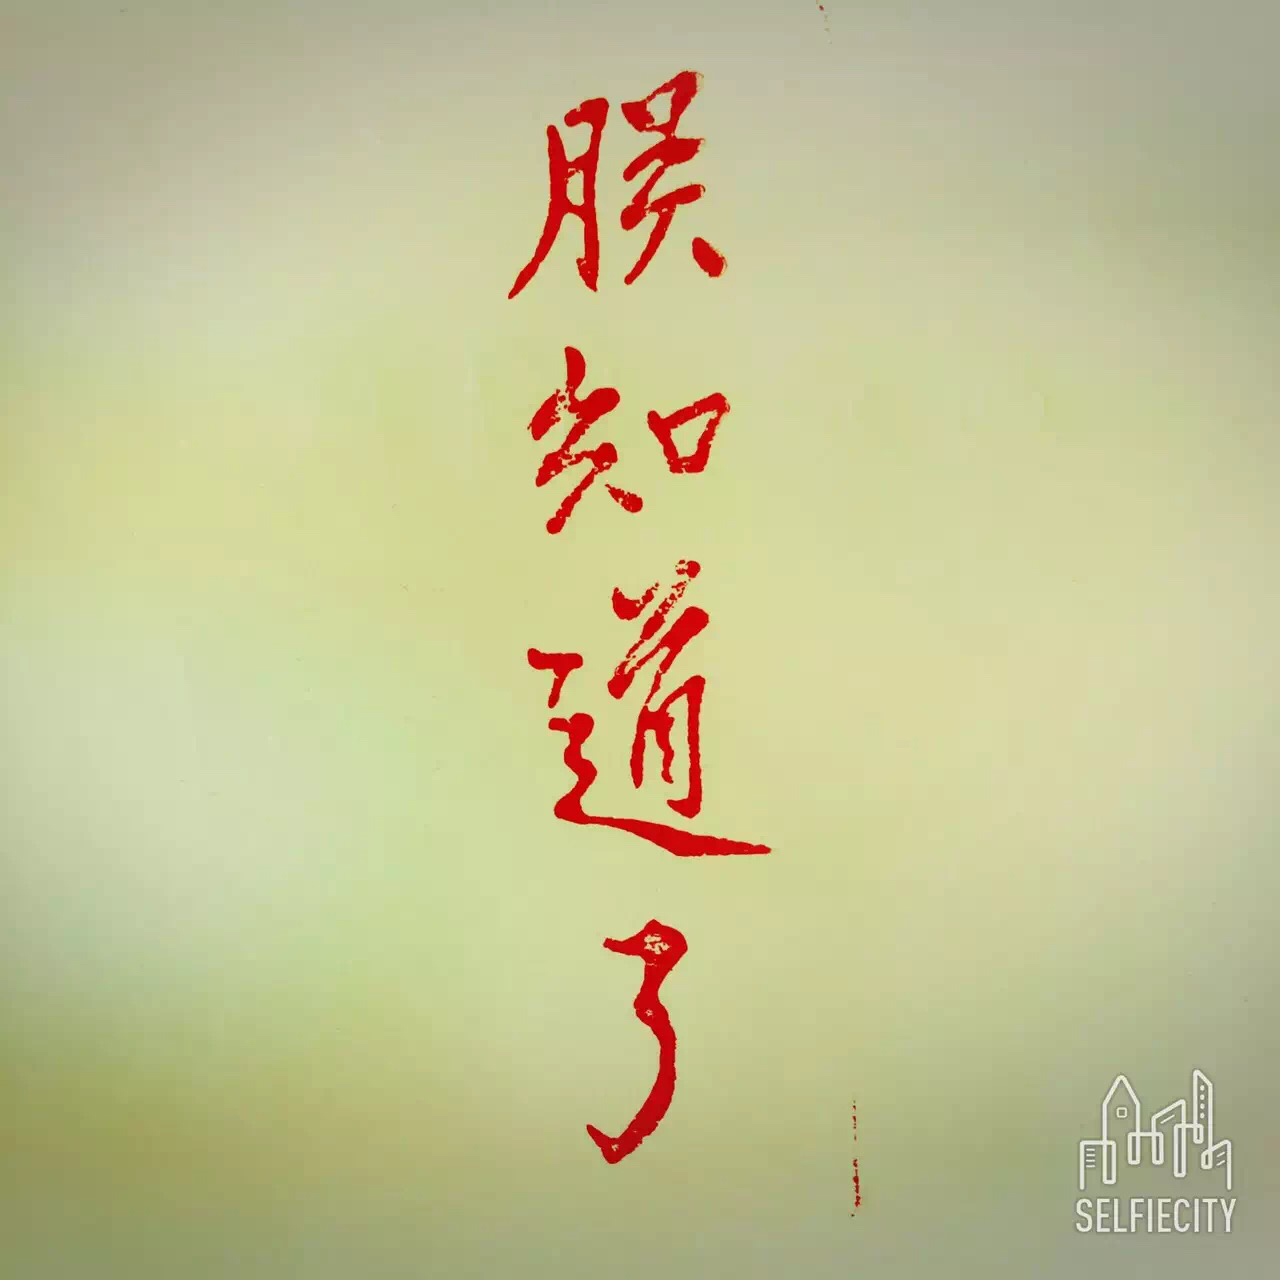 朕知道了
SELFIECITY